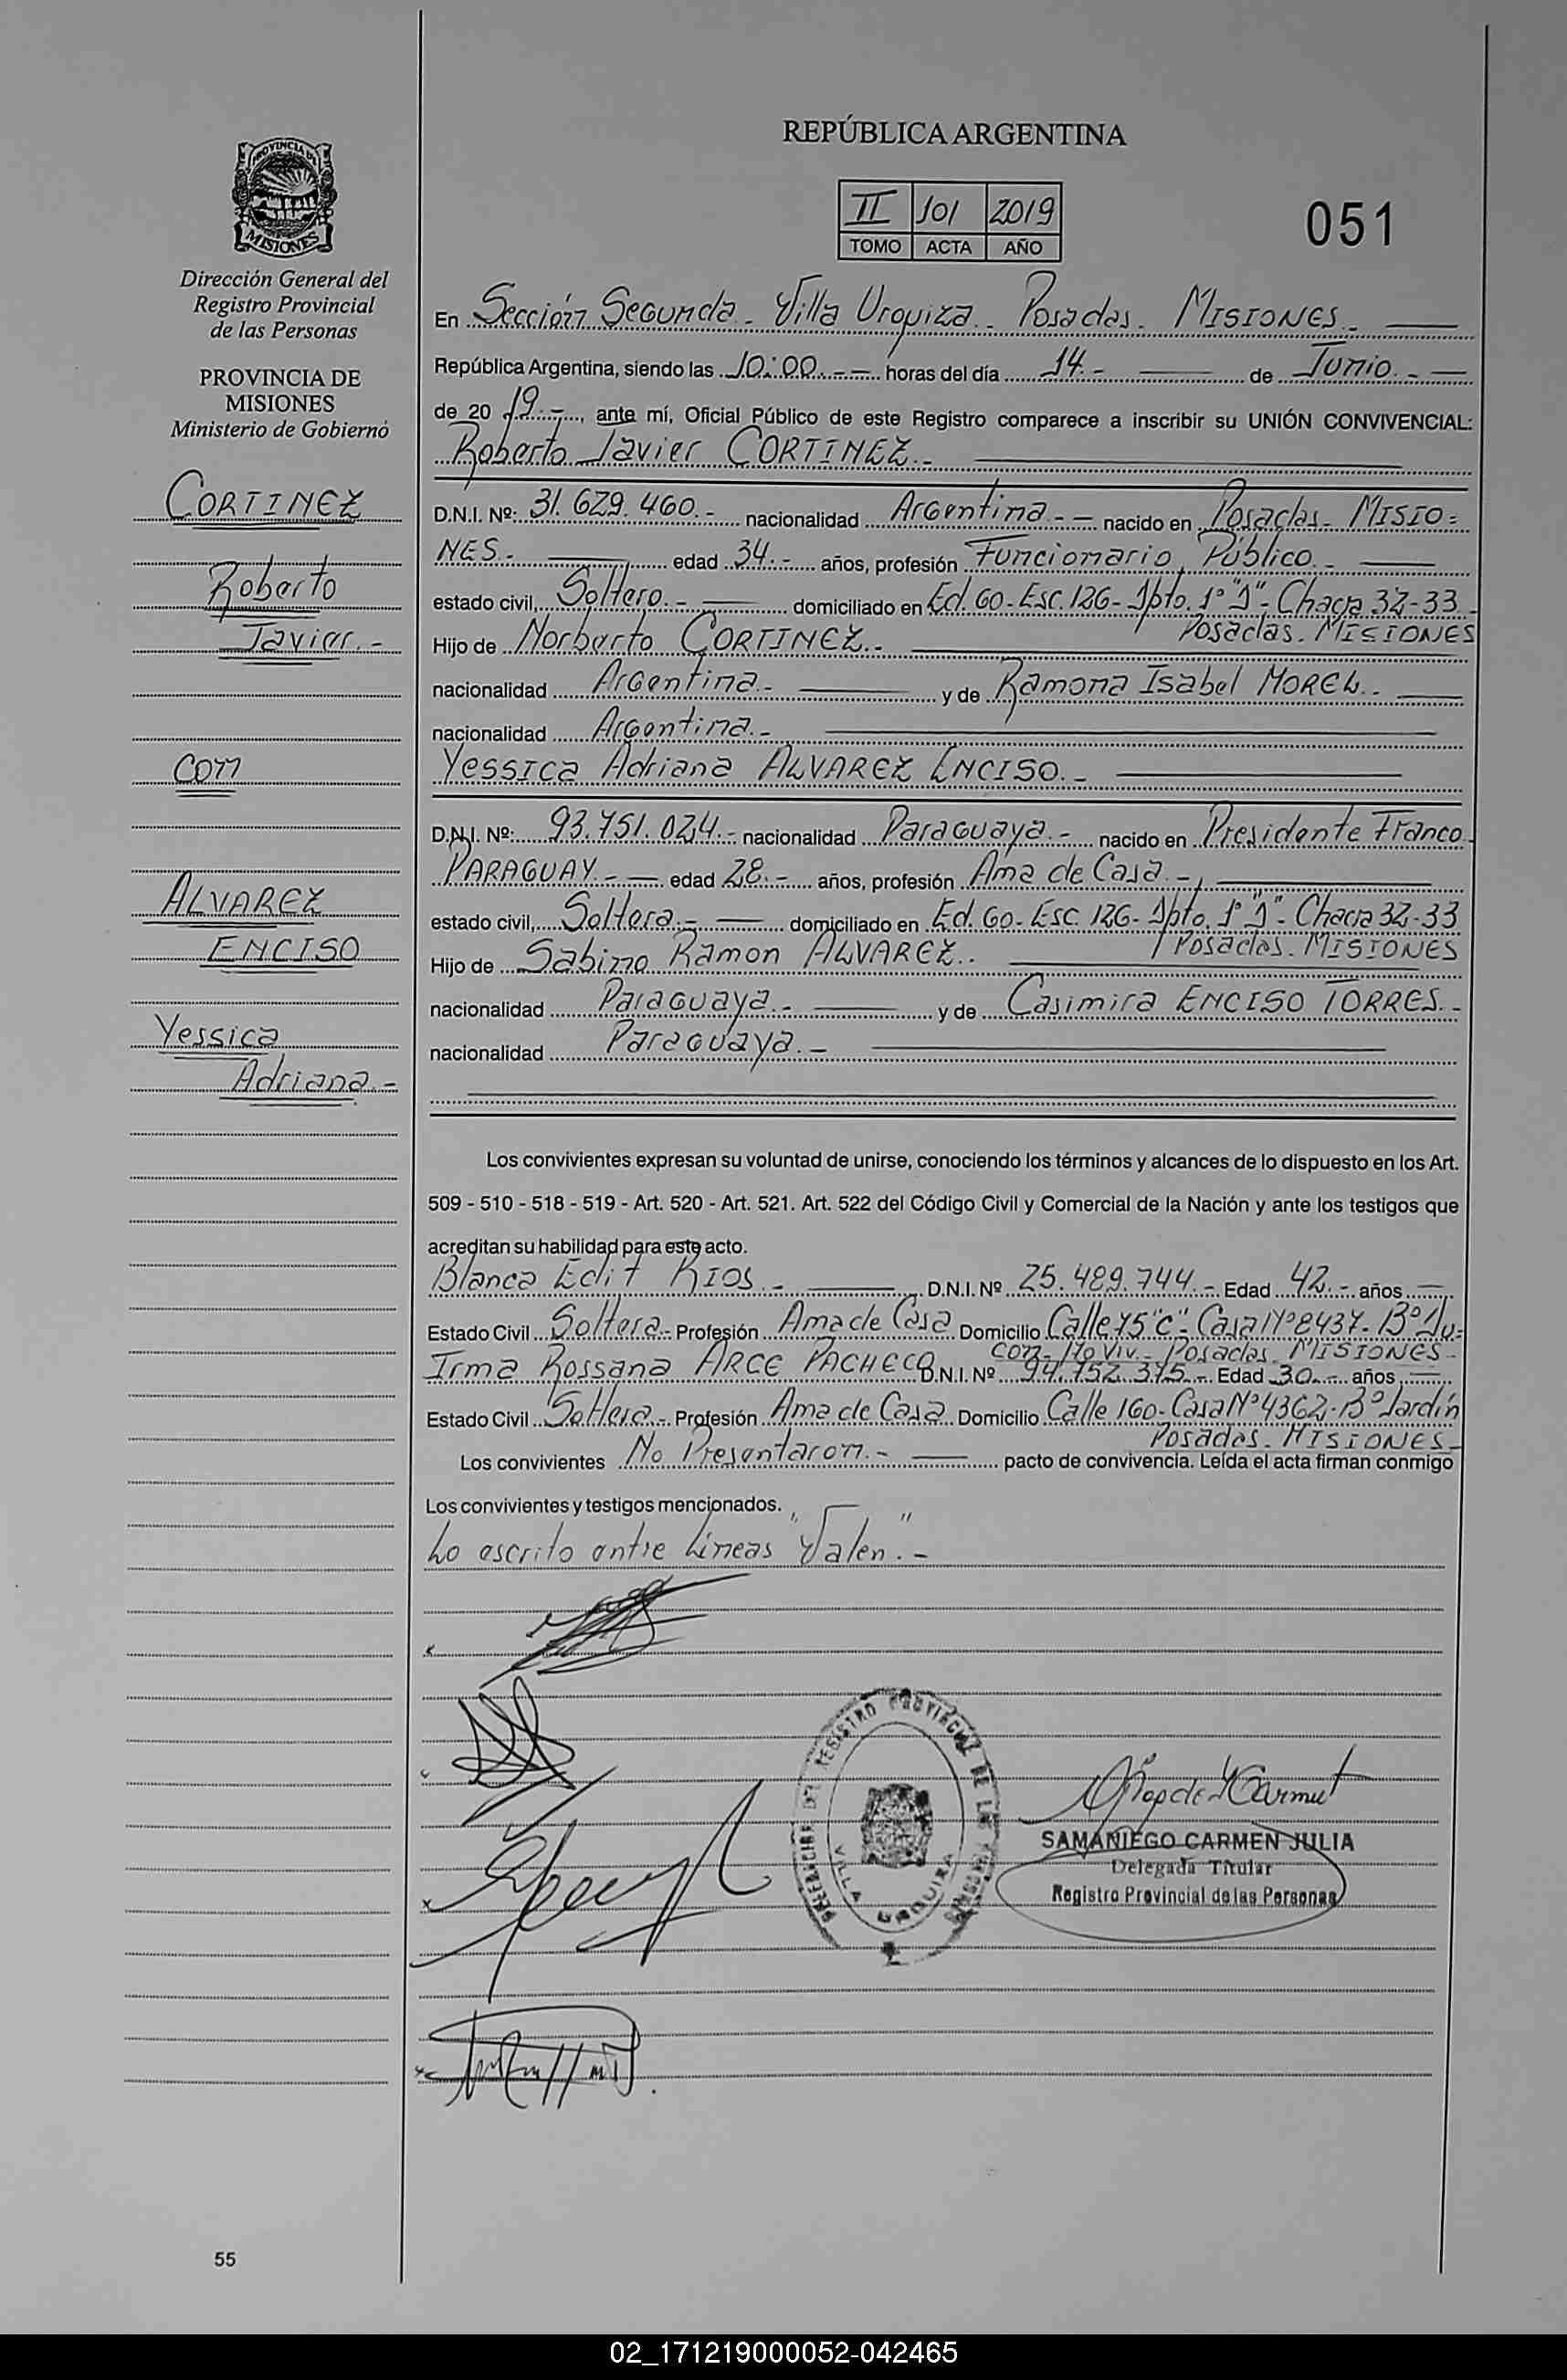 REPÚBLICA ARGENTINA
II 101 2019
TOMO ACTA AÑO
051
PROVINCIA DE
MISIONES
Dirección General del
Registro Provincial
de las Personas
PROVINCIA DE
MISIONES
Ministerio de Gobierno
CORTINEZ
Roberto
Javier.-
con
ALVAREZ
ENCISO
Yessica
Adriana.-
En Sección Segunda - Villa Urquiza - Posadas - MISIONES.-
República Argentina, siendo las 10:00.- horas del día 14.- de Junio.-
de 20 19.-, ante mí, Oficial Público de este Registro comparece a inscribir su UNIÓN CONVIVENCIAL:
Roberto Javier CORTINEZ.-
D.N.I. Nº: 31.629.460.- nacionalidad Argentina.- nacido en Posadas - MISIO=
NES.- edad 34.- años, profesión Funcionario Público.-
estado civil, Soltero.- domiciliado en Ed. 60 - Esc. 126 - Dpto. 1º "J" - Chacra 32-33 -
Posadas - MISIONES
Hijo de Norberto CORTINEZ.-
nacionalidad Argentina.- y de Ramona Isabel MOREL.-
nacionalidad Argentina.-
Yessica Adriana ALVAREZ ENCISO.-
D.N.I. Nº: 93.751.024.- nacionalidad Paraguaya.- nacido en Presidente Franco -
PARAGUAY.- edad 28.- años, profesión Ama de Casa.-
estado civil, Soltera.- domiciliado en Ed. 60 - Esc 126 - Dpto. 1º "J" - Chacra 32-33
Posadas - MISIONES
Hijo de Sabino Ramon ALVAREZ.-
nacionalidad Paraguaya.- y de Casimira ENCISO TORRES.-
nacionalidad Paraguaya.-
Los convivientes expresan su voluntad de unirse, conociendo los términos y alcances de lo dispuesto en los Art.
509 - 510 - 518 - 519 - Art. 520 - Art. 521. Art. 522 del Código Civil y Comercial de la Nación y ante los testigos que
acreditan su habilidad para este acto.
Blanca Edit RIOS.- D.N.I. Nº 25.489.744.- Edad 42.- años
Estado Civil Soltera.- Profesión Ama de Casa Domicilio Calle 75 "C" - Casa Nº 8437 - Bº
Viv.- Posadas MISIONES -
Irma Rossana ARCE PACHECO D.N.I. Nº 94.752.375.- Edad 30.- años
Estado Civil Soltera.- Profesión Ama de Casa Domicilio Calle 160 - Casa Nº 4362 - Bº Jardín
Posadas - MISIONES -
Los convivientes No Presentaron.- pacto de convivencia. Leída el acta firman conmigo
Los convivientes y testigos mencionados.
Lo escrito entre Líneas "Valen".-
REGISTRO PROVINCIAL DE LAS PERSONAS
VILLA URQUIZA
SAMANIEGO CARMEN JULIA
Delegada Titular
Registro Provincial de las Personas
55
02_171219000052-042465